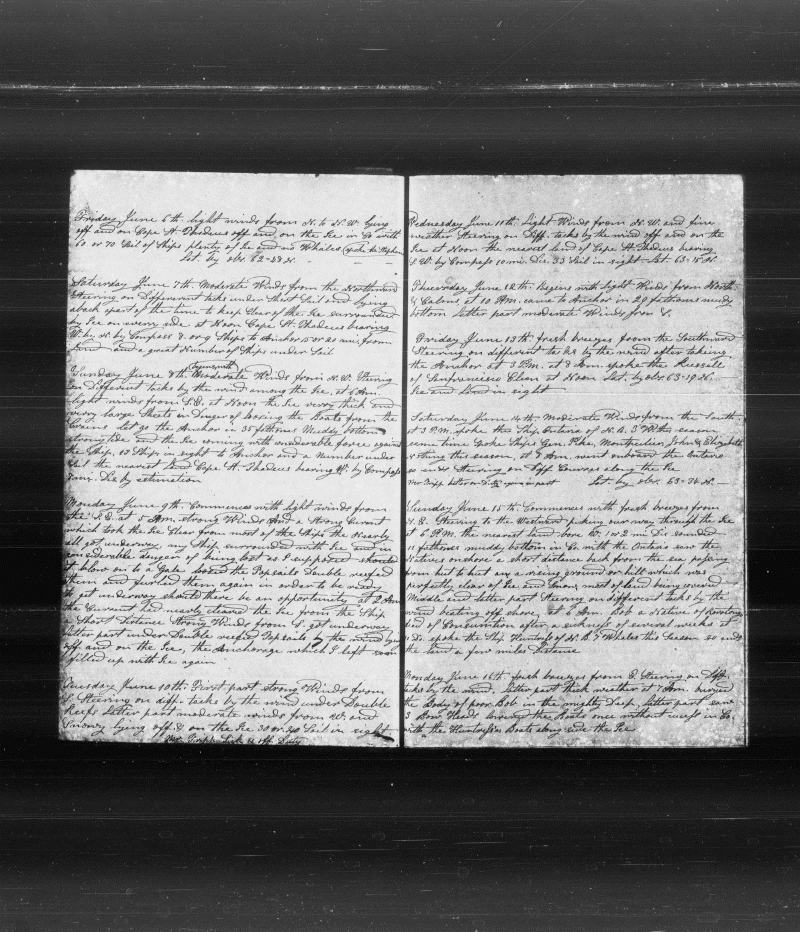 Friday June 6th light winds from N. to N.W. lying
off and on Cape St Thadeus off and on the Ice in Co with
60 or 70 Sail of Ships plenty of Ice and no Whales (spoke the
Lat. by obs. 62-43 N.
Saturday June 7th Moderate Winds from the Northward
Steering on Different tacks under Short Sail and lying
aback apart of the time to keep Clear of the Ice surrounded
by Ice on every side at Noon Cape St. Thadeus bearing
W. by N. by Compass 8 or 9 Ships to Anchor 15 or 20 mi. from
land and a great Number of Ships under Sail
Sunday June 8th Moderate Winds from N.W. Steering
on Different tacks by the wind among the Ice, at 6 Am.
light winds from S.E. at Noon the Ice very thick and
very large Sheets in danger of loosing the Boats from the
Cranes let go the Anchor in 35 fathoms Muddy bottom
strong tide and the Ice coming with considerable force against
the Ship, 10 Ships in sight to Anchor and a Number under
Sail the nearest land Cape St. Thadeus bearing W. by Compass
mi. Dis by estimation
Monday June 9th Commences with light winds from
the S.E. at 5 Am. strong Winds and a Strong Current
which took the Ice Clear from most of the Ships the Nearby
all got underway, my Ship surrounded with Ice and in
considerable danger of being lost as I supposed should
it blow on to a Gale loosed the Topsails Double reefed
them and furled them again in order to be ready
to get underway should there be an opportunity at 9 Am
the Current had nearly cleared the Ice from the Ship
a Short Distance Strong Winds from S. got underway
latter part under Double reefed Topsails by the wind lying
off and on the Ice, the Anchorage which I left soon
filled up with Ice again
Tuesday June 10th First part strong Winds from
S. Steering on diff. tacks by the wind under Double
Reefs Latter part moderate winds from W. and
Snowy lying off & on the Ice 30 or 40 Sail in sight
Mr. Tripp Sick & off Duty
Wednesday June 11th Light Winds from N.W. and fine
weather Steering on Diff. tacks by the wind off and on the
Ice at Noon the nearest land of Cape St. Thadeus bearing
S.W. by Compass 50 mi. Dis. 33 Sail in sight Lat. 63-15 N.
Thursday June 12th Begins with light Winds from North
& Calms, at 10 Am. came to Anchor in 29 fathoms muddy
bottom latter part moderate Winds from S.
Friday June 13th fresh breezes from the Southward
Steering on different tacks by the wind after taking
the Anchor at 3 P.M. at 8 Am. spoke the Russell
of Sanfrancisco Clean at Noon Lat. by obs 63-19 N.
Ice and land in sight
Saturday June 14th Moderate Winds from the South
at 3 P.M. spoke the Ship Ontario of N.B. 3 Whs season
same time spoke Ships Gen. Pike, Montpelier, John & Elizabeth
nothing this season, at 9 Am. went onboard the Ontario
Steering on Diff Courses along the Ice
Mr Tripp better on Duty again in part Lat. by obs. 63-34 N.
Sunday June 15th Commences with fresh breezes from
N.E. Steering to the Westward picking our way through the Ice
at 6 P.M. the nearest land bore W. 1 or 2 mi Dis sounded
11 fathoms muddy bottom in Co. with the Ontario saw the
Natives onshore a short distance back from the sea passing
from hut to hut on a rising ground or hill which was
perfectly clear of Ice and Snow, most of land being covered
Middle and latter part Steering on different tacks by the
wind beating off shore, at 6 Am. Bob a Native of
died of Consumption after a sickness of several weeks at
Do. spoke the Ship Huntress of N.B. 3 Whales this Season
the land a few miles Distance
Monday June 16th fresh breezes from E Steering on Diff.
tacks by the wind. Latter part thick weather at 7 Am. buried
the Body of poor Bob in the mighty Deep, latter part saw
3 Bow Heads lowered the Boats once without success in Co.
with the Huntress's Boats along side the Ice